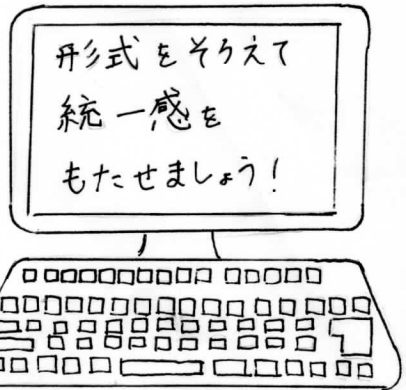 形式をそろえて
統一感を
もたせましょう!